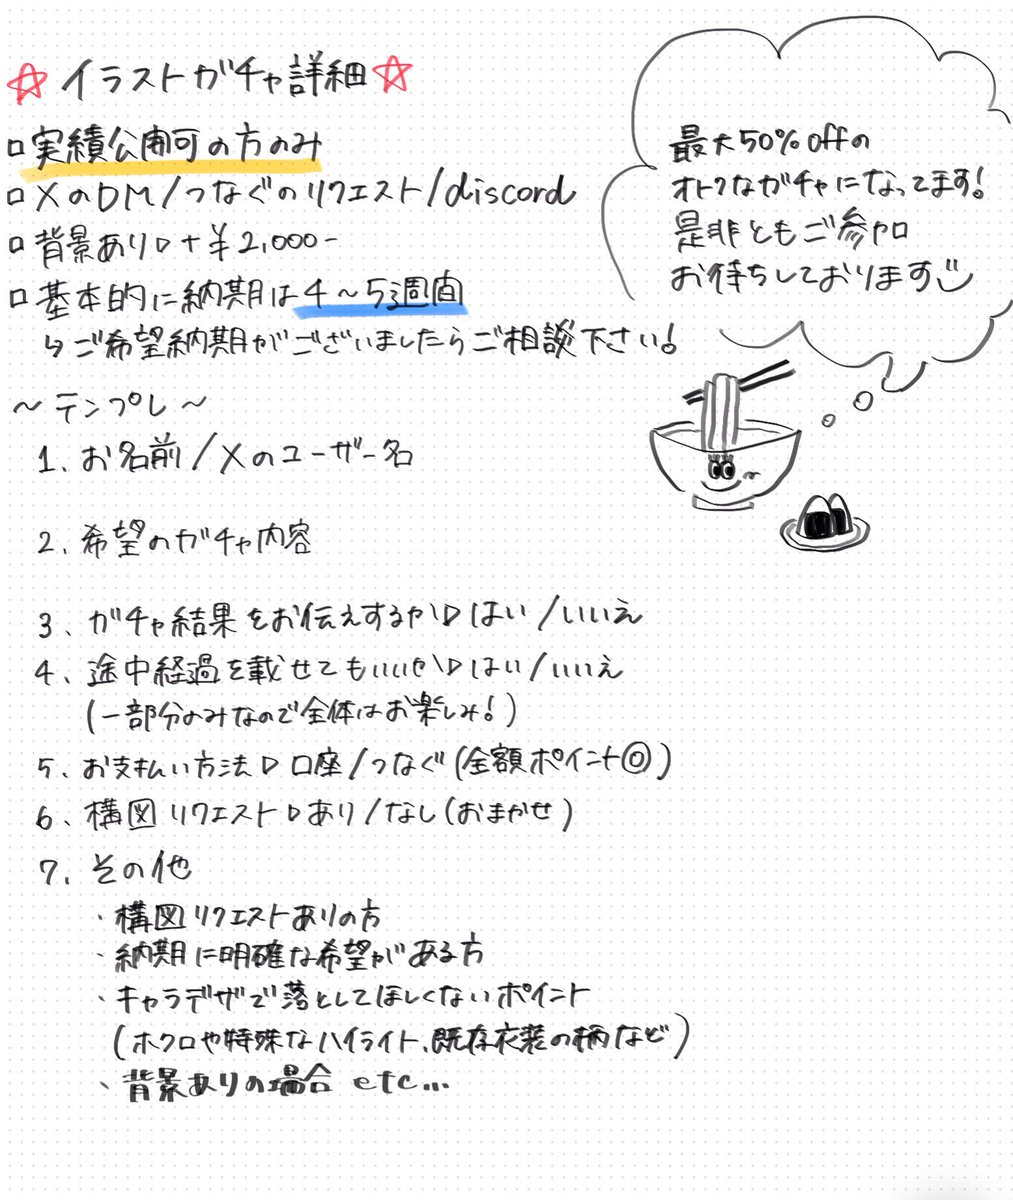 ☆イラストガチャ詳細☆
□実績公開可の方のみ
□XのDM/つなぐのリクエスト/discord
□背景あり▷+¥2,000-
□基本的に納期は4～5週間
↳ご希望納期がございましたらご相談下さい！
最大50%offの
オトクなガチャになってます！
是非ともご参加
お待ちしております
～テンプレ～
1、お名前/Xのユーザー名
2、希望のガチャ内容
3、ガチャ結果をお伝えするか▷はい/いいえ
4、途中経過を載せてもいいか▷はい/いいえ
(一部分のみなので全体はお楽しみ！)
5、お支払い方法▷口座/つなぐ(全額ポイント◎)
6、構図リクエスト▷あり/なし(おまかせ)
7、その他
・構図リクエストありの方
・納期に明確な希望がある方
・キャラデザで落としてほしくないポイント
(ホクロや特殊なハイライト、既存衣装の柄など)
・背景ありの場合 etc...